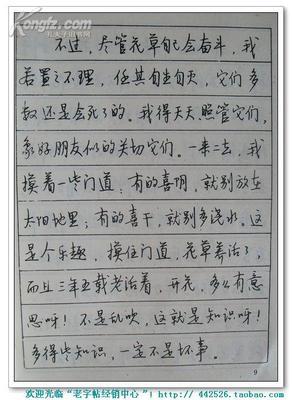 KongfZ.com
孔夫子旧书网
不过，尽管花草自己会奋斗，我
若置之不理，任其自生自灭，它们多
数还是会死了的。我得天天照管它们，
象好朋友似的关切它们。一来二去，我
摸着一些门道：有的喜阴，就别放在
太阳地里；有的喜干，就别多浇水。这
是个乐趣，摸住门道，花草养活了，
而且三年五载老活着，开花，多么有意
思呀！不是乱吹，这就是知识呀！
多得些知识，一定不是坏事。
9
欢迎光临“老字帖经销中心”! http://442526.taobao.com